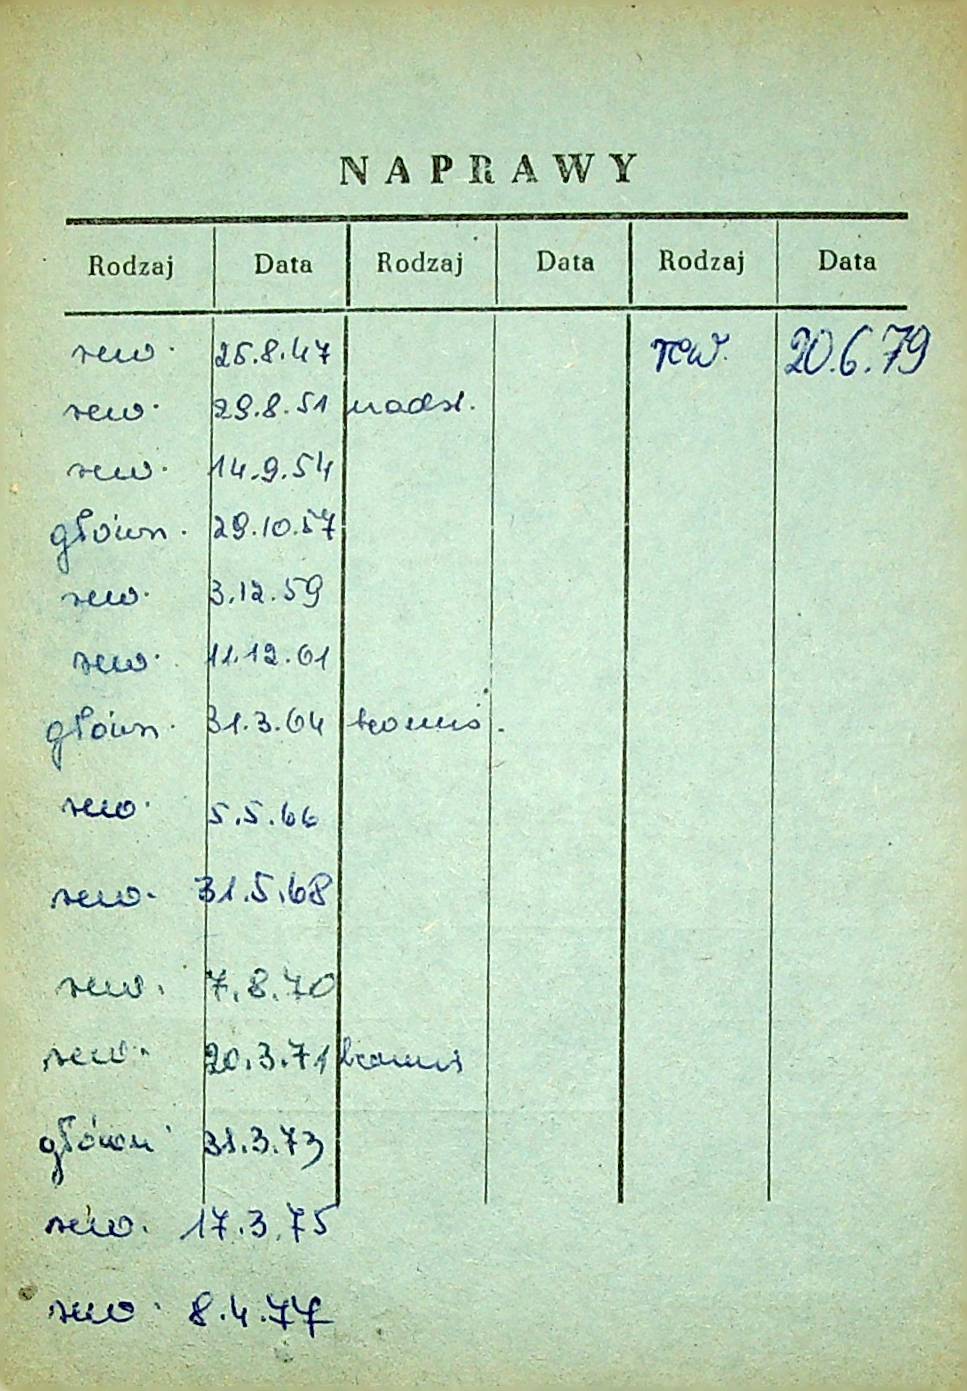 NAPRAWY
Rodzaj Data Rodzaj Data Rodzaj Data
rew. 25.8.47 rew. 20.6.79
rew. 29.8.51 nadzt.
rew. 14.9.54
główn. 29.10.57
rew. 3.12.59
rew. 11.12.61
główn. 31.3.64
rew. 5.5.66
rew. 31.5.68
rew. 7.8.70
rew. 20.3.71
główn 31.3.73
rew. 17.3.75
rew. 8.4.77